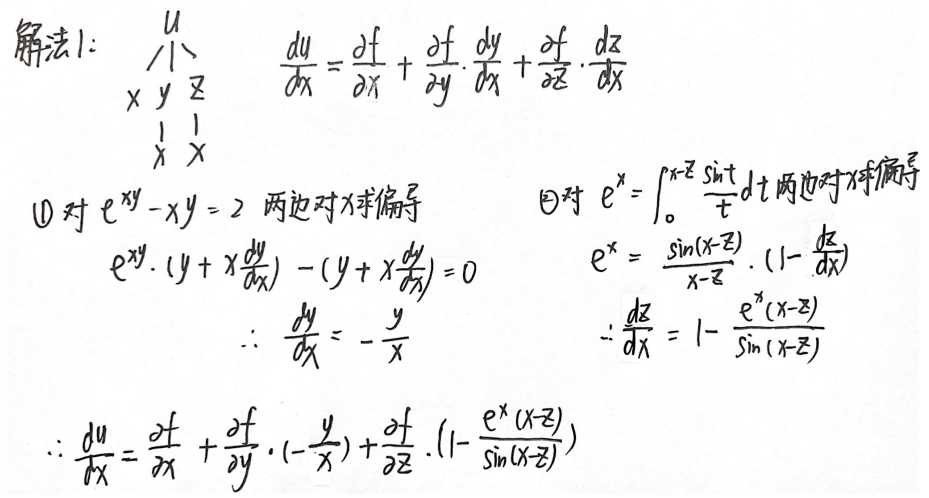 解法1:
u
x y z
x x
du/dx = ∂f/∂x + ∂f/∂y · dy/dx + ∂f/∂z · dz/dx
① 对 e^{xy} - xy = 2 两边对x求偏导
e^{xy} · (y + x dy/dx) - (y + x dy/dx) = 0
∴ dy/dx = - y/x
②对 e^x = ∫_0^{x-z} sint/t dt 两边对x求偏导
e^x = sin(x-z)/(x-z) · (1 - dz/dx)
∴ dz/dx = 1 - e^x(x-z)/sin(x-z)
∴ du/dx = ∂f/∂x + ∂f/∂y · (- y/x) + ∂f/∂z · (1 - e^x(x-z)/sin(x-z))